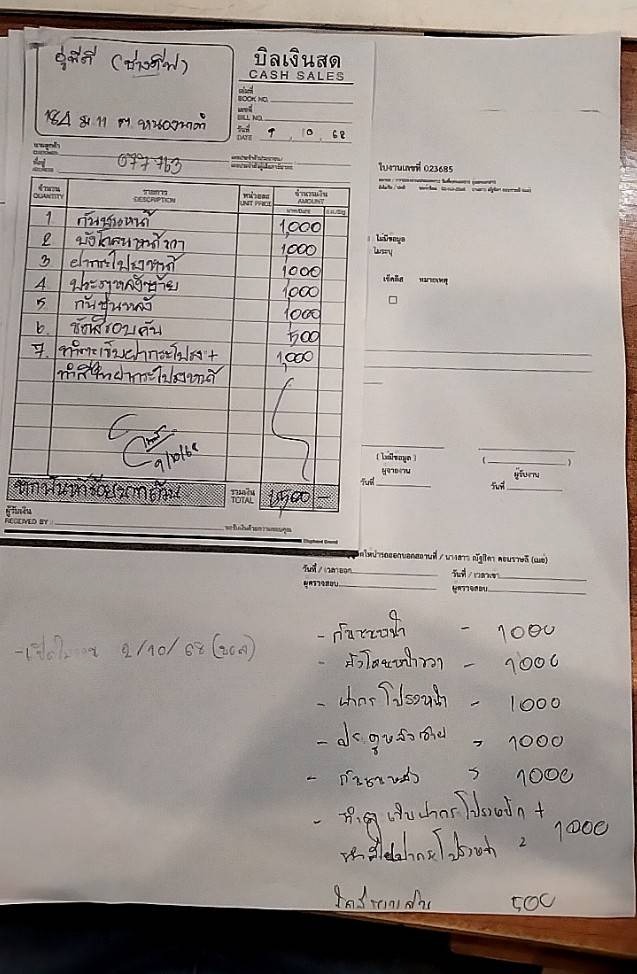 อู่พีดี (ช่างกีฬา)
184 ม.11 ต.หนองนาคำ
บิลเงินสด
CASH SALES
เล่มที่
BOOK NO.
เลขที่
BILL NO.
วันที่
DATE 9, 10, 68
นามลูกค้า
CUSTOMER
ที่อยู่
ADDRESS
677763
จำนวน รายการ หน่วยละ จำนวนเงิน
QUANTITY DESCRIPTION UNIT PRICE AMOUNT
1 กันชนหน้า 1,000
2 บังโคลนหน้าขวา 1000
3 ฝากระโปรงหน้า 1000
4 ประตูหลังซ้าย 1000
5 กันชนหลัง 1000
6. ขัดสีรอบคัน 500
7. ฝากระโปรง + 1,000
ทำสีฝากระโปรงหน้า
9/10/68
หกพันห้าร้อยบาทถ้วน
รวมเงิน
TOTAL 6,500 -
ผู้รับเงิน
RECEIVED BY
ขอรับเงินด้วยความขอบคุณ
Elephant Brand
ใบงานเลขที่ 023685
ไม่มีข้อมูล
ไม่ระบุ
เช็คลิส หมายเหตุ
( ไม่มีข้อมูล ) ( )
ผู้จ่ายงาน ผู้รับงาน
วันที่ วันที่
วันที่ / เวลาออก วันที่ / เวลาเข้า
ผู้ตรวจสอบ ผู้ตรวจสอบ
2/10/68
- กันชนหน้า - 1000
- บังโคลนหน้าขวา - 1000
- ฝากระโปรงหน้า - 1000
- ประตูหลังซ้าย = 1000
- กันชนหลัง = 1000
- ฝากระโปรง + 1000
ทำสีฝากระโปรงหน้า
500